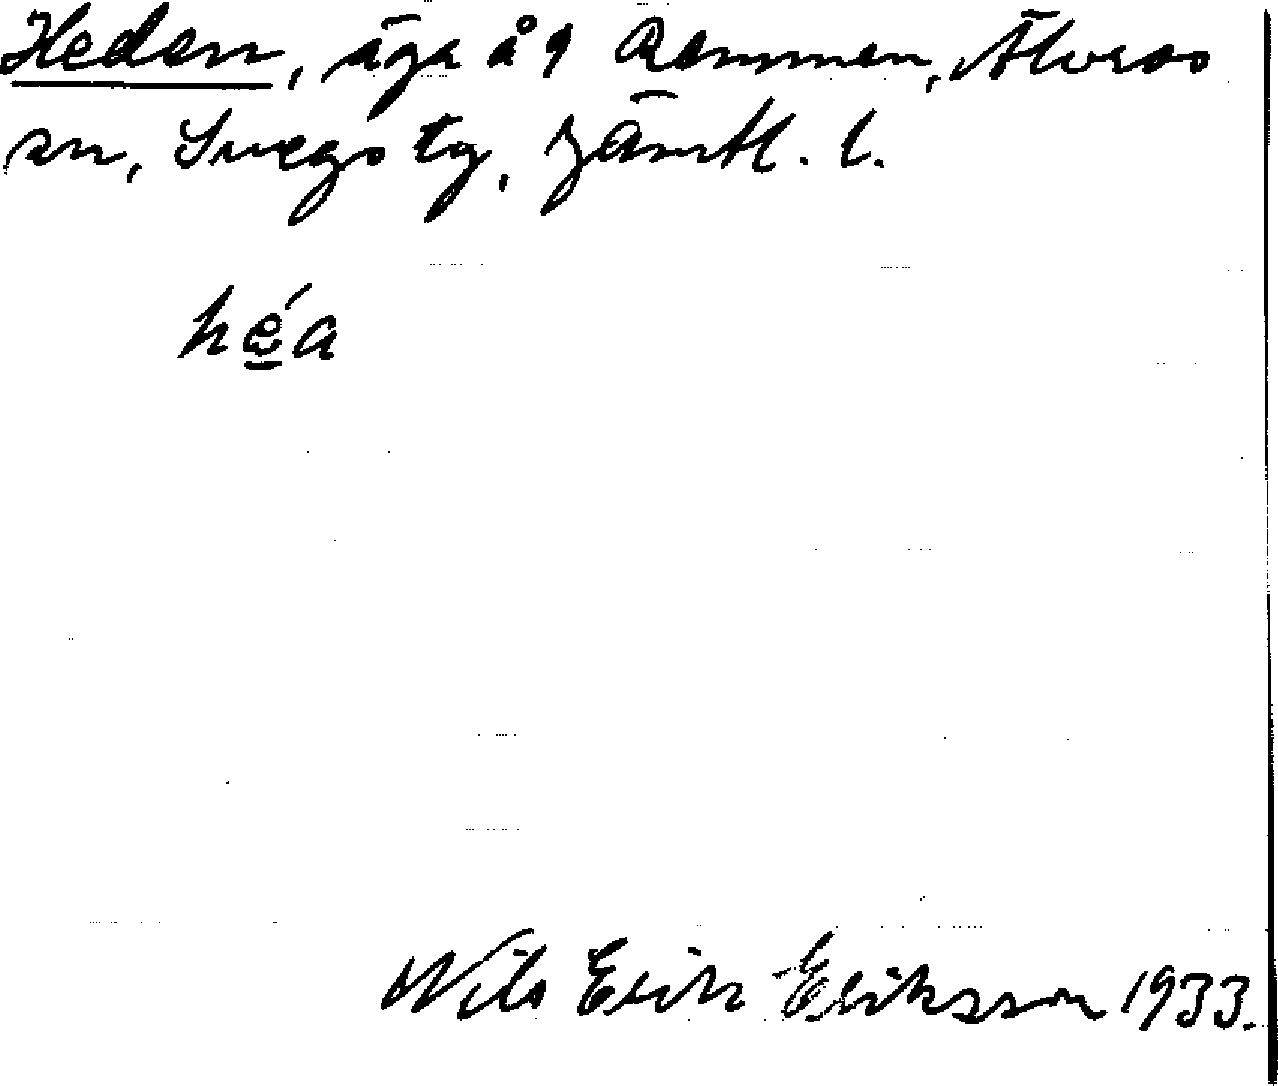 Heden, äga å 9 Remmen, Älvros
sn, Svegs tg, Jämtl. l.
hé̱a
Nils Erik Eriksson 1933.